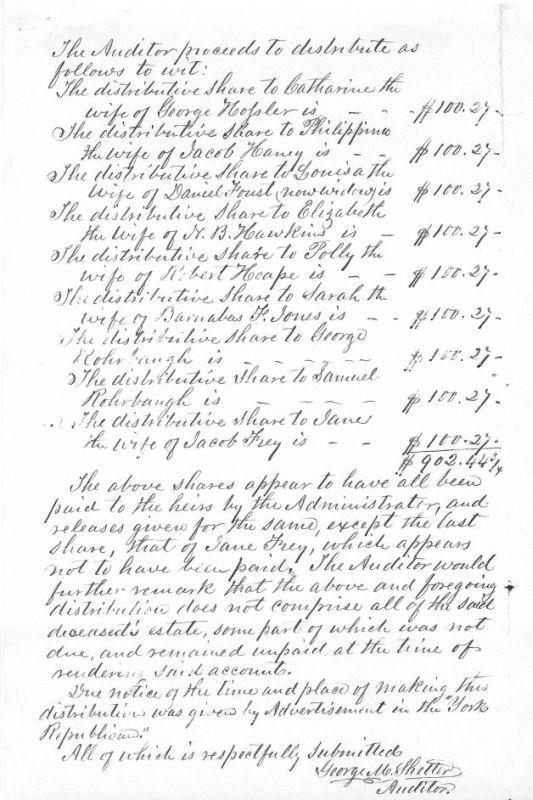 The Auditor proceeds to distribute as
follows to wit:
The distributive share to Catharine the
wife of George Hossler is - - - $100.27-
The distributive share to Philippina
the wife of Jacob Haney is - - $100.27-
The distributive share to Louisa the
wife of Daniel Foust, now widow, is $100.27-
The distributive share to Elizabeth
the wife of N. B. Hawkins is - $100.27-
The distributive share to Polly the
wife of Robert Heape is - - $100.27-
The distributive share to Sarah the
wife of Barnabas F. Jones is - - $100.27-
The distributive share to George
Rohrbaugh is - - - - - - $100.27-
The distributive share to Samuel
Rohrbaugh is - - - - - $100.27-
The distributive share to Jane
the wife of Jacob Frey is - - $100.27-
$902.44¾
The above shares appear to have all been
paid to the heirs by the Administrator, and
releases given for the same, except the last
share, that of Jane Frey, which appears
not to have been paid. The Auditor would
further remark that the above and foregoing
distribution does not comprise all of the said
deceased's estate, some part of which was not
due, and remained unpaid at the time of
rendering said account.
Due notice of the time and place of making this
distribution was given by Advertisement in the "York
Republican."
All of which is respectfully submitted
George M. Shetter
Auditor.